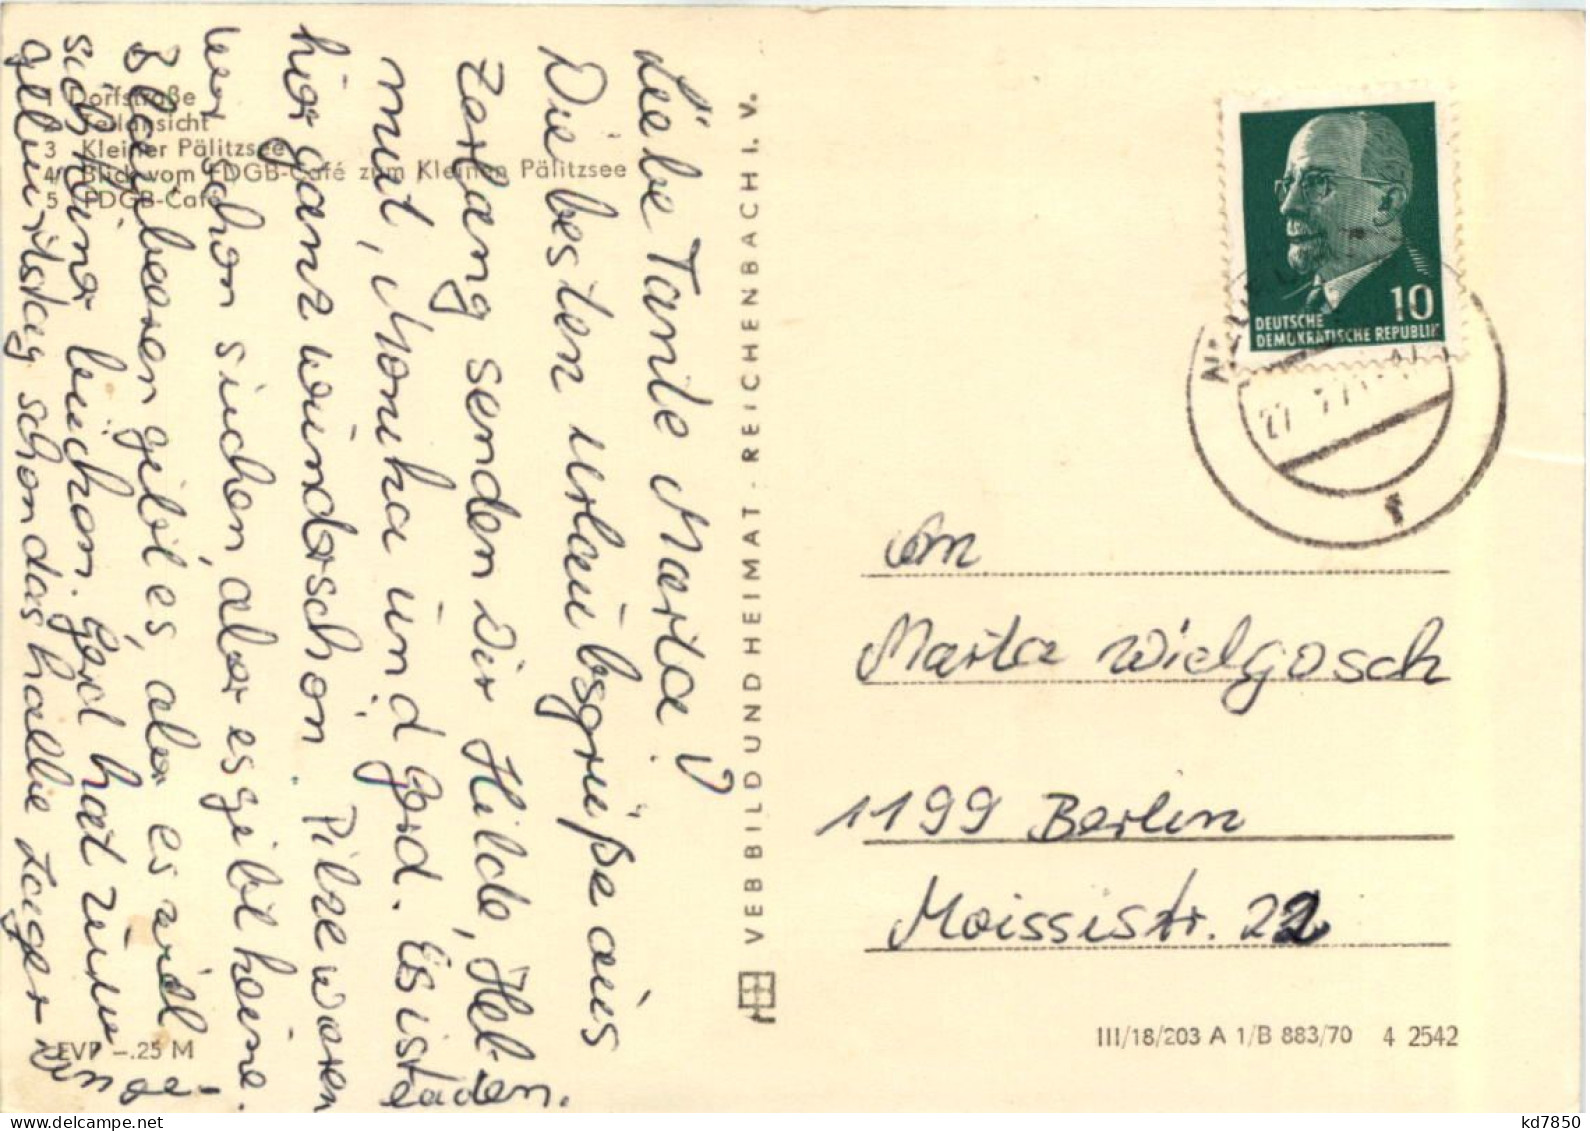 1 Dorfstraße
2 Teilansicht
3 Kleiner Pälitzsee
4 Blick vom FDGB-Café zum Kleinen Pälitzsee
5 FDGB-Café
Liebe Tante Marta!
Die besten Urlaubsgrüße aus
senden Dir Hilde, Hel-
mut, Monika und Gerd. Es ist
hier ganz wunderschön. Pilze waren
wir schon suchen, aber es gibt keine.
Blaubeeren gibt es, aber es will
sich keiner bücken. Gerd hat zum Ge-
burtstag schon das halbe Lager
eingeladen.
VEB BILD UND HEIMAT · REICHENBACH I. V.
EVP –.25 M
10
DEUTSCHE
DEMOKRATISCHE REPUBLIK
27
f
Marta Wielgosch
1199 Berlin
Moissistr. 22
III/18/203 A 1/B 883/70 4 2542
kd7850